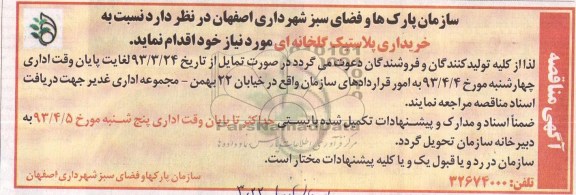 سازمان پارک ها و فضای سبز شهرداری اصفهان در نظر دارد نسبت به
خریداری پلاستیک گلخانه ای مورد نیاز خود اقدام نماید.
لذا از کلیه تولیدکنندگان و فروشندگان دعوت می گردد در صورت تمایل از تاریخ ۹۳/۳/۲۴ لغایت پایان وقت اداری
چهارشنبه مورخ ۹۳/۴/۴ به امور قراردادهای سازمان واقع در خیابان ۲۲ بهمن - مجموعه اداری غدیر جهت دریافت
اسناد مناقصه مراجعه نمایند.
ضمناً اسناد و مدارک و پیشنهادات تکمیل شده بایستی حداکثر تا پایان وقت اداری پنج شنبه مورخ ۹۳/۴/۵ به
دبیرخانه سازمان تحویل گردد.
سازمان در رد و یا قبول یک و یا کلیه پیشنهادات مختار است.
تلفن: ۳۲۶۷۴۰۰۰
سازمان پارکها و فضای سبز شهرداری اصفهان
آگهی مناقصه
ParsNamadData